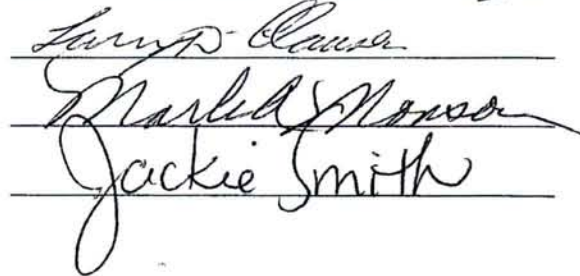 Larry D. Clausen
Mark A Monson
Jackie Smith